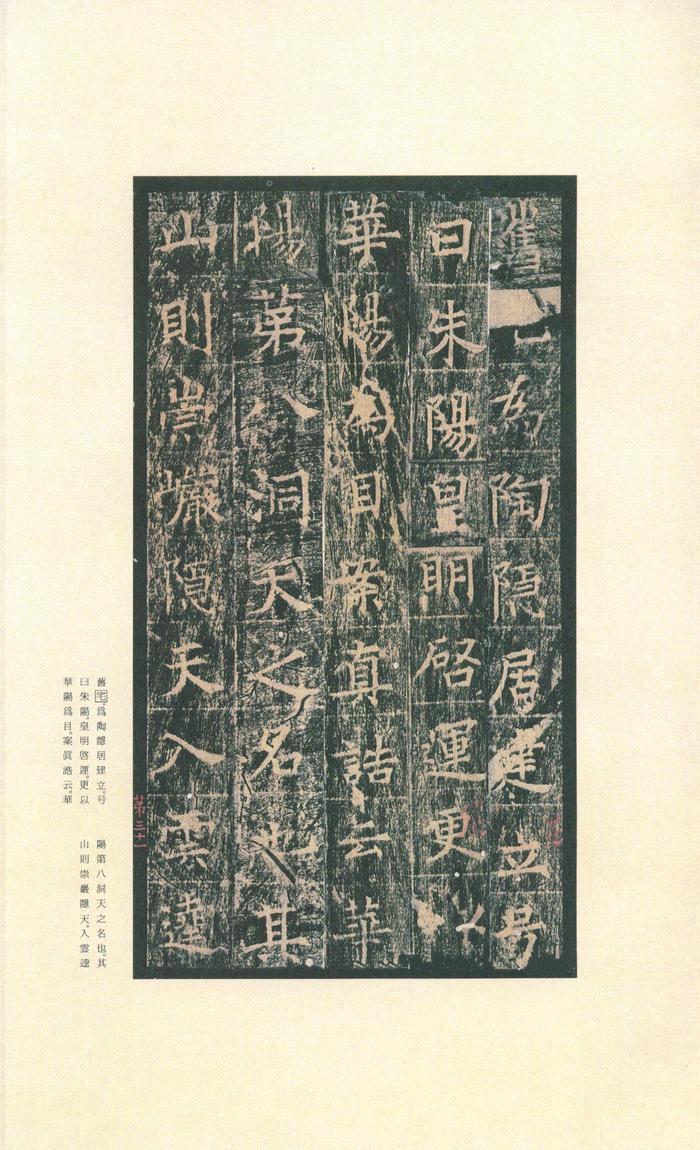 舊宅為陶隱居建立号
曰朱陽皇明啓運更以
華陽為目案真誥云華
陽苐八洞天之名也其
山則崇巖隱天入雲逵
苐三十一
舊宅。爲陶隱居建立。号
曰朱陽。皇明啓運。更以
華陽爲目。案眞誥云。華
陽第八洞天之名也。其
山則崇巖隱天。入雲逵